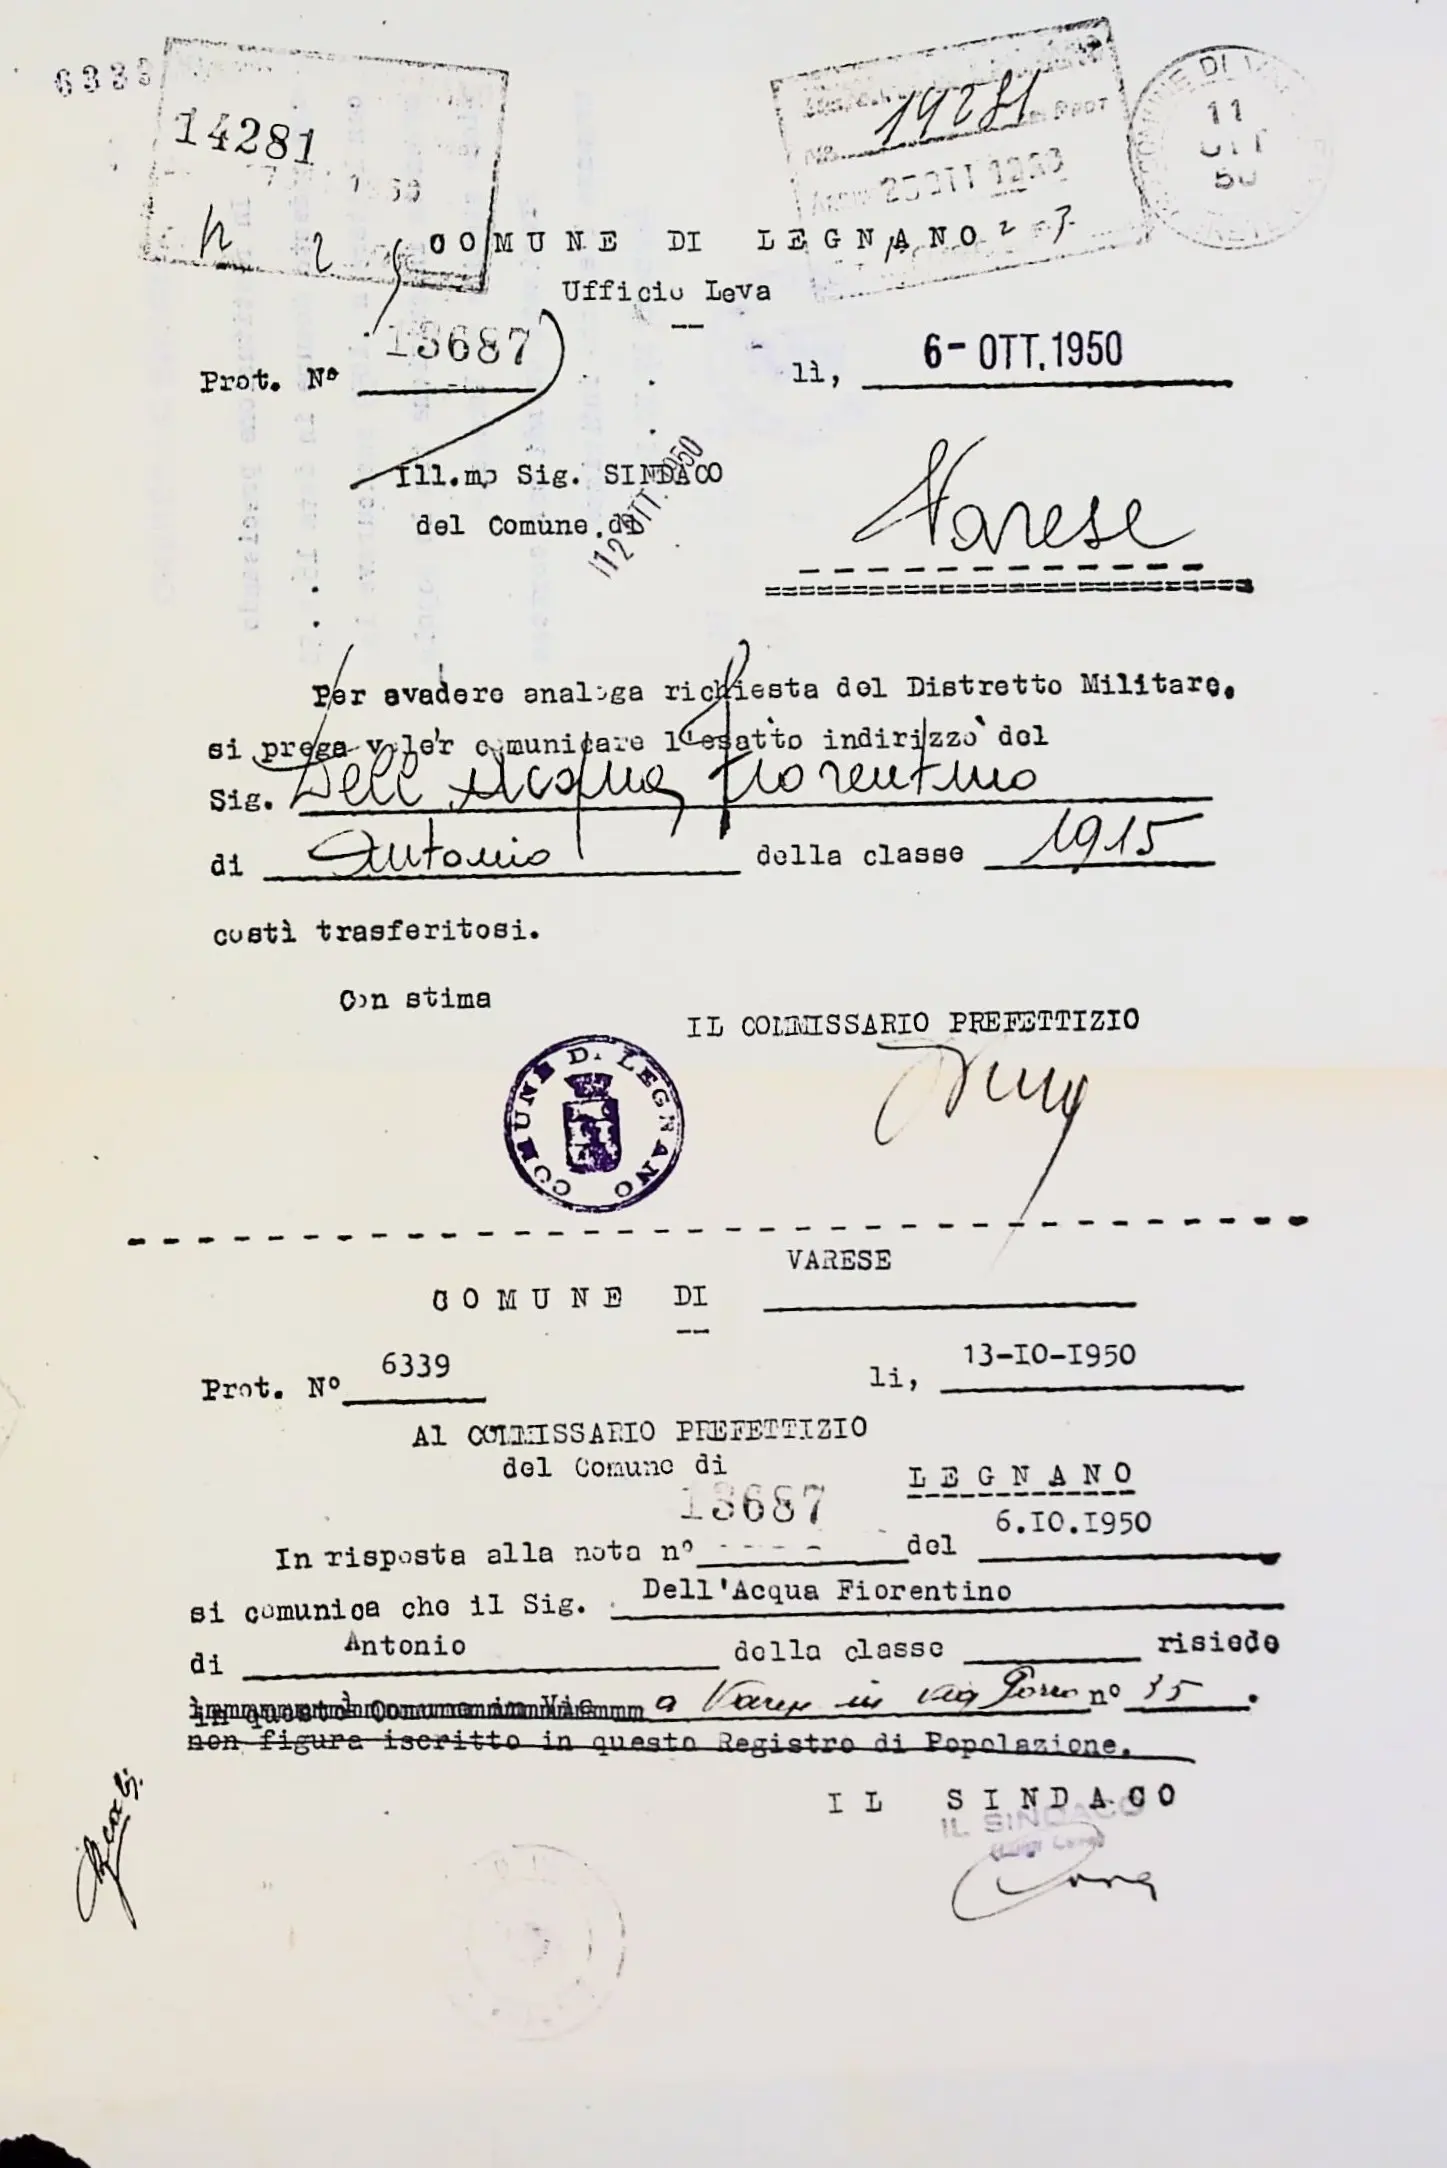 6339
14281
14281
11
OTT
50
COMUNE DI LEGNANO
Ufficio Leva
Prot. N° 13687
lì, 6- OTT. 1950
Ill.mo Sig. SINDACO
del Comune di Varese
12 OTT. 1950
Per evadere analoga richiesta del Distretto Militare,
si prega voler comunicare l'esatto indirizzo del
Sig. Dell'Acqua Fiorentino
di Antonio della classe 1915
costì trasferitosi.
Con stima
IL COMMISSARIO PREFETTIZIO
COMUNE DI LEGNANO
COMUNE DI VARESE
Prot. N° 6339
li, 13-IO-I950
Al COMMISSARIO PREFETTIZIO
del Comune di LEGNANO
In risposta alla nota n° 13687 del 6.IO.I950
si comunica che il Sig. Dell'Acqua Fiorentino
di Antonio della classe risiede
in questo Comune in Via a Varese in via Porro n° 35.
non figura iscritto in questo Registro di Popolazione.
IL SINDACO
IL SINDACO